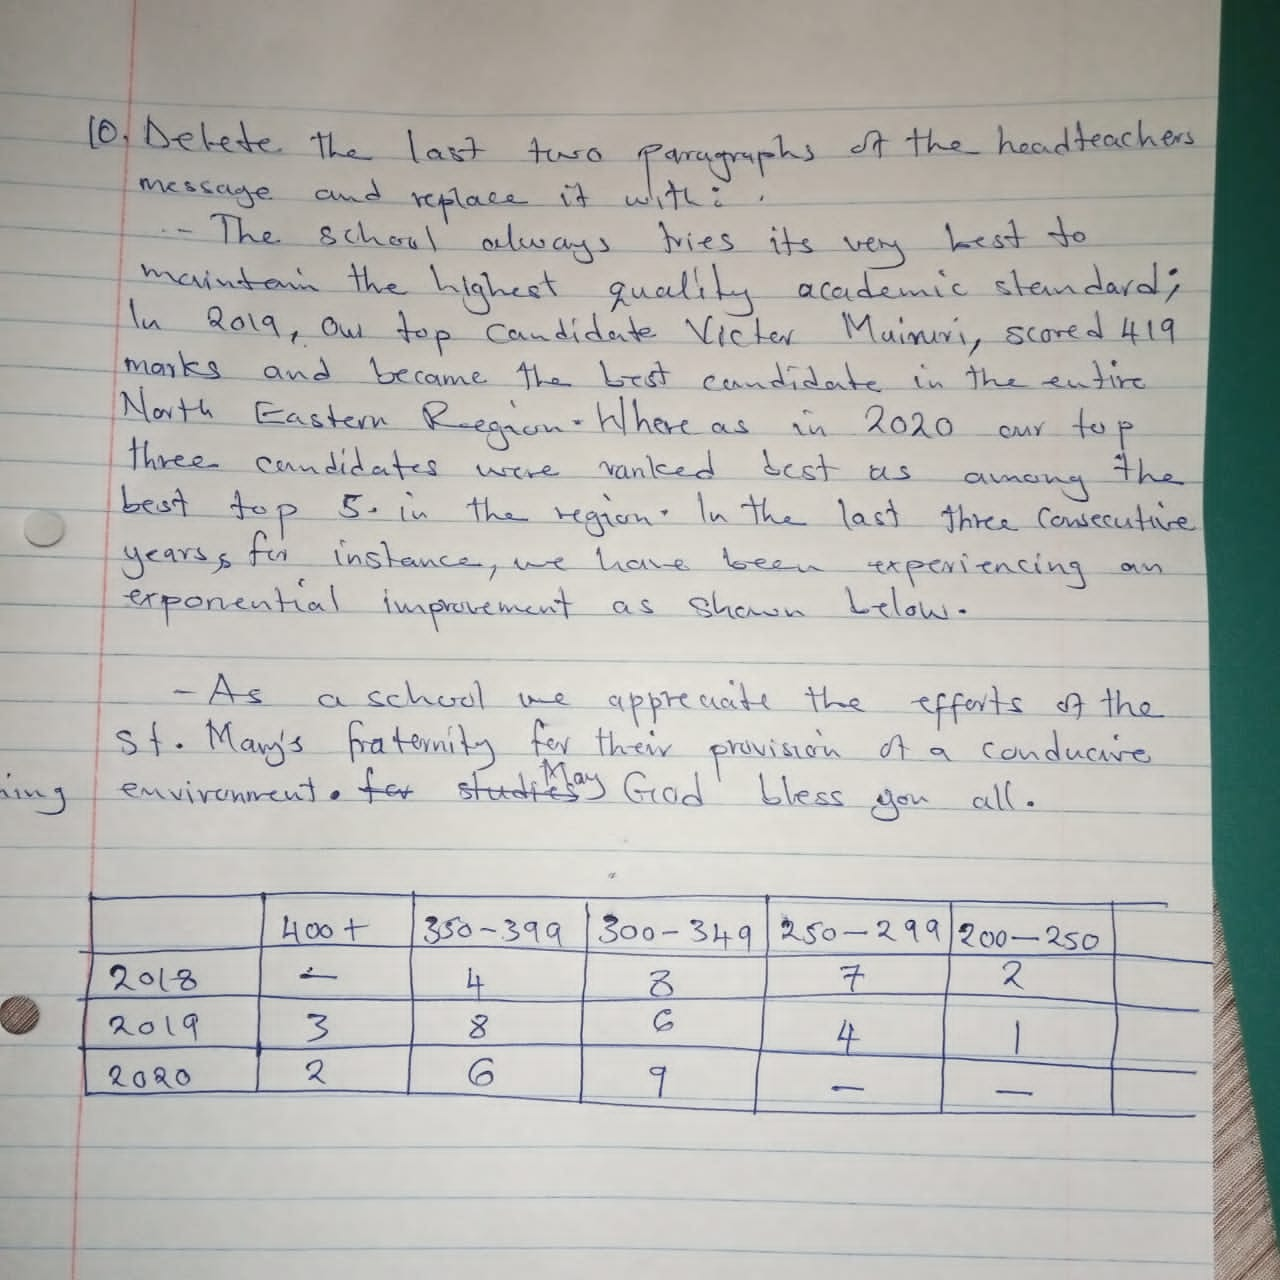 10. Delete the last two paragraphs of the headteachers
message and replace it with:
- The school always tries its very best to
maintain the highest quality academic standard;
In 2019, our top candidate Victor Muiruri, scored 419
marks and became the best candidate in the entire
North Eastern Region. Where as in 2020 our top
three candidates were ranked best as among the
best top 5. in the region. In the last three consecutive
years, for instance, we have been experiencing an
exponential improvement as shown below.
- As a school we appreciate the efforts of the
St. Mary's fraternity for their provision of a conducive
environment. for studies May God bless you all.
400+ 350-399 300-349 250-299 200-250
2018 - 4 8 7 2
2019 3 8 6 4 1
2020 2 6 9 - -